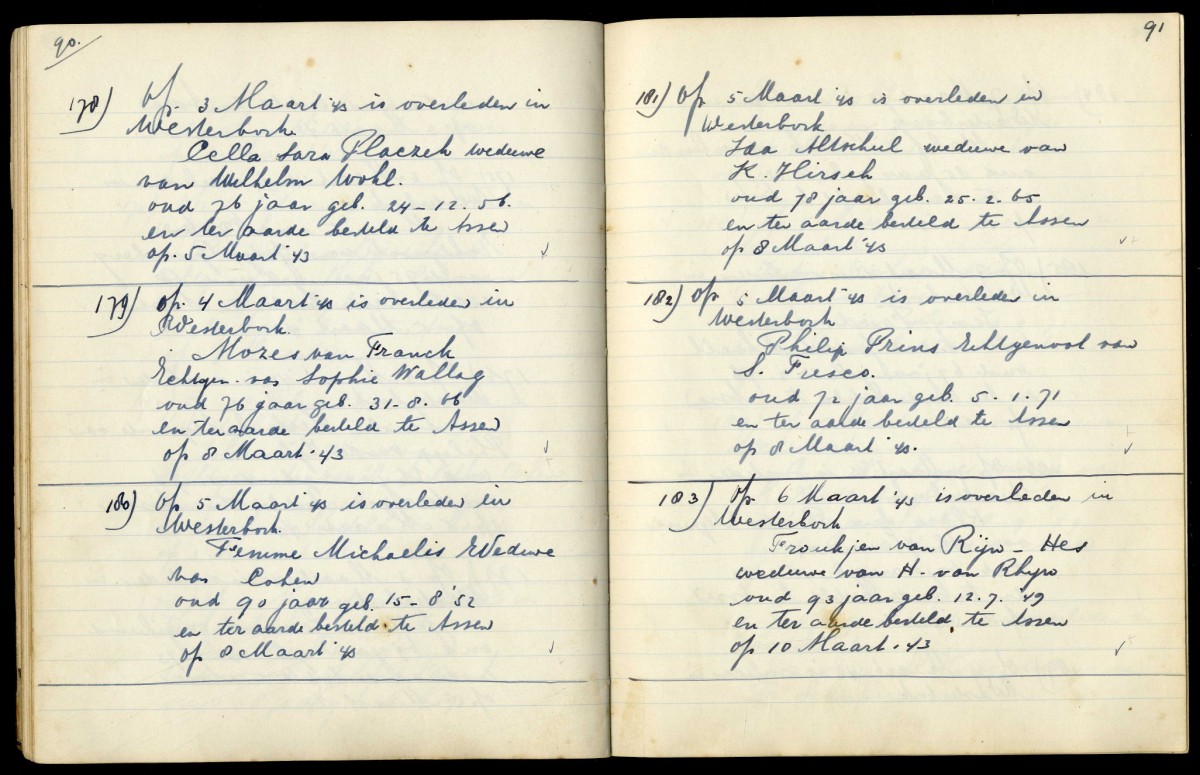 90.
178) Op. 3 Maart '43 is overleden in
Westerbork.
Cella Sara Placzek weduwe
van Wilhelm Wohl.
oud 76 jaar geb. 24-12.56.
en ter aarde besteld te Assen
op. 5 Maart '43
179) op. 4 Maart '43 is overleden in
Westerbork.
Mozes van Franck
Echtgen. van Sophie Wallag
oud 76 jaar geb. 31-8.66
en ter aarde besteld te Assen
op 8 Maart. 43
180) Op 5 Maart '43 is overleden in
Westerbork.
Femme Michaelis Weduwe
van Cohen
oud 90 jaar geb. 15-8 '52
en ter aarde besteld te Assen
op 8 Maart '43
91
181) Op 5 Maart '43 is overleden in
Westerbork
Ida Altschul weduwe van
K. Hirsch
oud 78 jaar geb. 25.2.65
en ter aarde besteld te Assen
op 8 Maart '43
182) Op 5 Maart '43 is overleden in
Westerbork
Philip Prins Echtgenoot van
S. Fresco.
oud 72 jaar geb. 5.1.71
en ter aarde besteld te Assen
op 8 Maart '43.
183) Op 6 Maart '43 is overleden in
Westerbork
Froukjen van Rijn - Hes
weduwe van H. van Rhijn
oud 93 jaar geb. 12.7.'49
en ter aarde besteld te Assen
op 10 Maart. 43